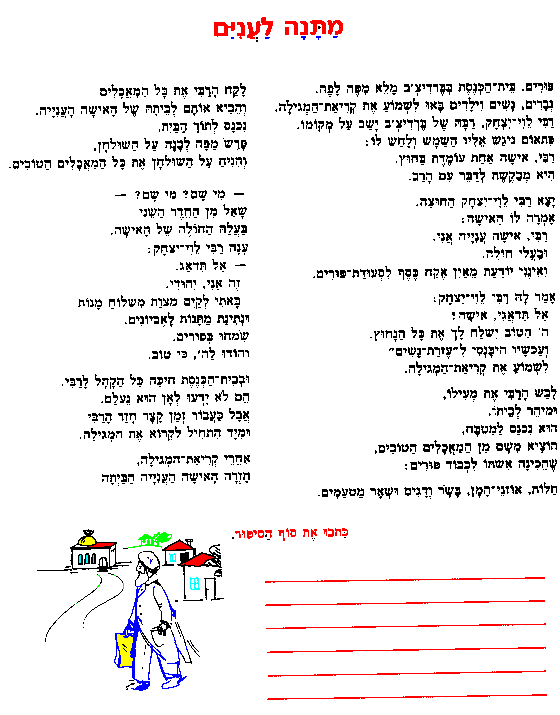 מַתָּנָה לַעֲנִיִּים
פּוּרִים. בֵּית־הַכְּנֶסֶת בְּבֶּרְדִיצ'ב מָלֵא מִפֶּה לְפֶה.
גְּבָרִים, נָשִׁים וִילָדִים בָּאוּ לִשְׁמוֹעַ אֶת קְרִיאַת־הַמְּגִילָה.
רַבִּי לֵוִי־יִצְחָק, רַבָּהּ שֶׁל בֶּרְדִיצ'ב יָשַׁב עַל מְקוֹמוֹ.
פִּתְאוֹם נִיגַּשׁ אֵלָיו הַשַּׁמָּשׁ וְלָחַשׁ לוֹ:
רַבִּי, אִישָׁה אַחַת עוֹמֶדֶת בַּחוּץ.
הִיא מְבַקֶּשֶׁת לְדַבֵּר עִם הָרַב.
יָצָא רַבִּי לֵוִי־יִצְחָק הַחוּצָה.
אָמְרָה לוֹ הָאִישָׁה:
רַבִּי, אִישָׁה עֲנִיָּיה אֲנִי.
וּבַעְלִי חוֹלֶה.
וְאֵינֶנִּי יוֹדַעַת מֵאַיִן אֶקַּח כֶּסֶף לִסְעוּדַת־פּוּרִים.
אָמַר לָהּ רַבִּי לֵוִי־יִצְחָק:
אַל תִּדְאֲגִי, אִישָׁה!
ה' הַטּוֹב יִשְׁלַח לָךְ אֶת כָּל הַנָּחוּץ.
וְעַכְשָׁיו הִיכָּנְסִי לְ"עֶזְרַת־נָשִׁים"
לִשְׁמוֹעַ אֶת קְרִיאַת־הַמְּגִילָה.
לָבַשׁ הָרַבִּי אֶת מְעִילוֹ,
וּמִיהֵר לְבֵיתוֹ.
הוּא נִכְנַס לַמִּטְבָּח,
הוֹצִיא מִשָּׁם מִן הַמַּאֲכָלִים הַטּוֹבִים,
שֶׁהֵכִינָה אִשְׁתּוֹ לִכְבוֹד פּוּרִים:
חַלּוֹת, אוֹזְנֵי־הָמָן, בָּשָׂר וְדָגִים וּשְׁאָר מַטְעַמִּים.
לָקַח הָרַבִּי אֶת כָּל הַמַּאֲכָלִים
וְהֵבִיא אוֹתָם לְבֵיתָהּ שֶׁל הָאִישָׁה הָעֲנִיָּיה.
נִכְנַס לְתוֹךְ הַבַּיִת,
פָּרַשׂ מַפָּה לְבָנָה עַל הַשּׁוּלְחָן,
וְהִנִּיחַ עַל הַשּׁוּלְחָן אֶת כָּל הַמַּאֲכָלִים הַטּוֹבִים.
— מִי שָׁם? מִי שָׁם? —
שָׁאַל מִן הַחֶדֶר הַשֵּׁנִי
בַּעֲלָהּ הַחוֹלֶה שֶׁל הָאִישָׁה.
עָנָה רַבִּי לֵוִי־יִצְחָק:
— אַל תִּדְאַג.
זֶה אֲנִי, יְהוּדִי.
בָּאתִי לְקַיֵּם מִצְוַת מִשְׁלוֹחַ מָנוֹת
וּנְתִינַת מַתָּנוֹת לָאֶבְיוֹנִים.
שִׂמְחוּ בְּפוּרִים.
וְהוֹדוּ לַה', כִּי טוֹב.
וּבְבֵית־הַכְּנֶסֶת חִיכָּה כָּל הַקָּהָל לָרַבִּי.
הֵם לֹא יָדְעוּ לְאָן הוּא נֶעְלַם.
אֲבָל כַּעֲבוֹר זְמַן קָצָר חָזַר הָרַבִּי
וּמִיָּד הִתְחִיל לִקְרוֹא אֶת הַמְּגִילָה.
אַחֲרֵי קְרִיאַת־הַמְּגִילָה,
חָזְרָה הָאִישָׁה הָעֲנִיָּיה הַבַּיְתָה
כִּתְבוּ אֶת סוֹף הַסִּיפּוּר.